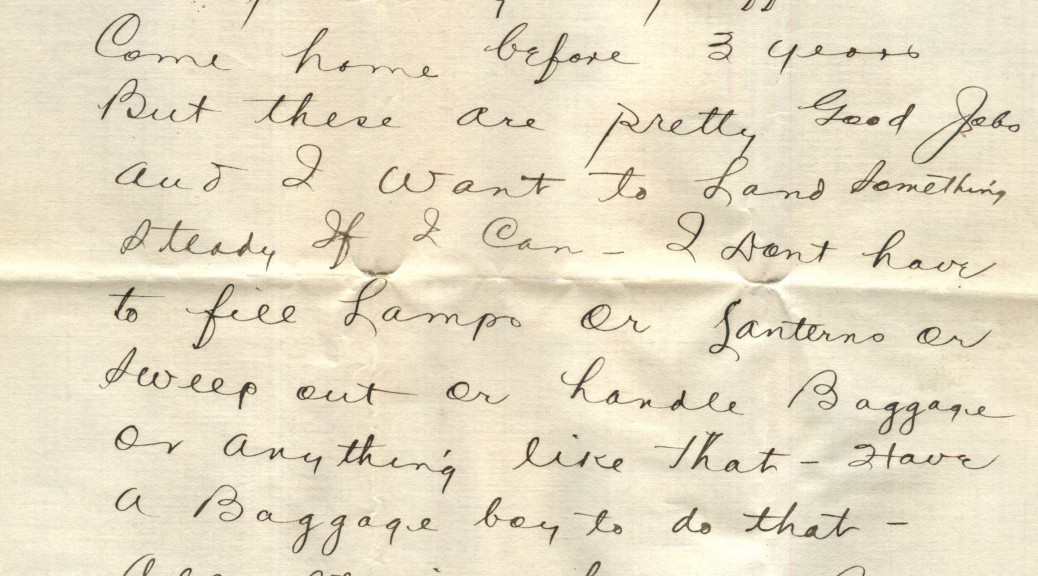 Come home before 3 years
But these are pretty Good Jobs
and I want to Land Something
Steady If I Can - I Dont have
to fill Lamps Or Lanterns Or
Sweep out Or handle Baggage
Or anything like that - Have
a Baggage boy to do that -